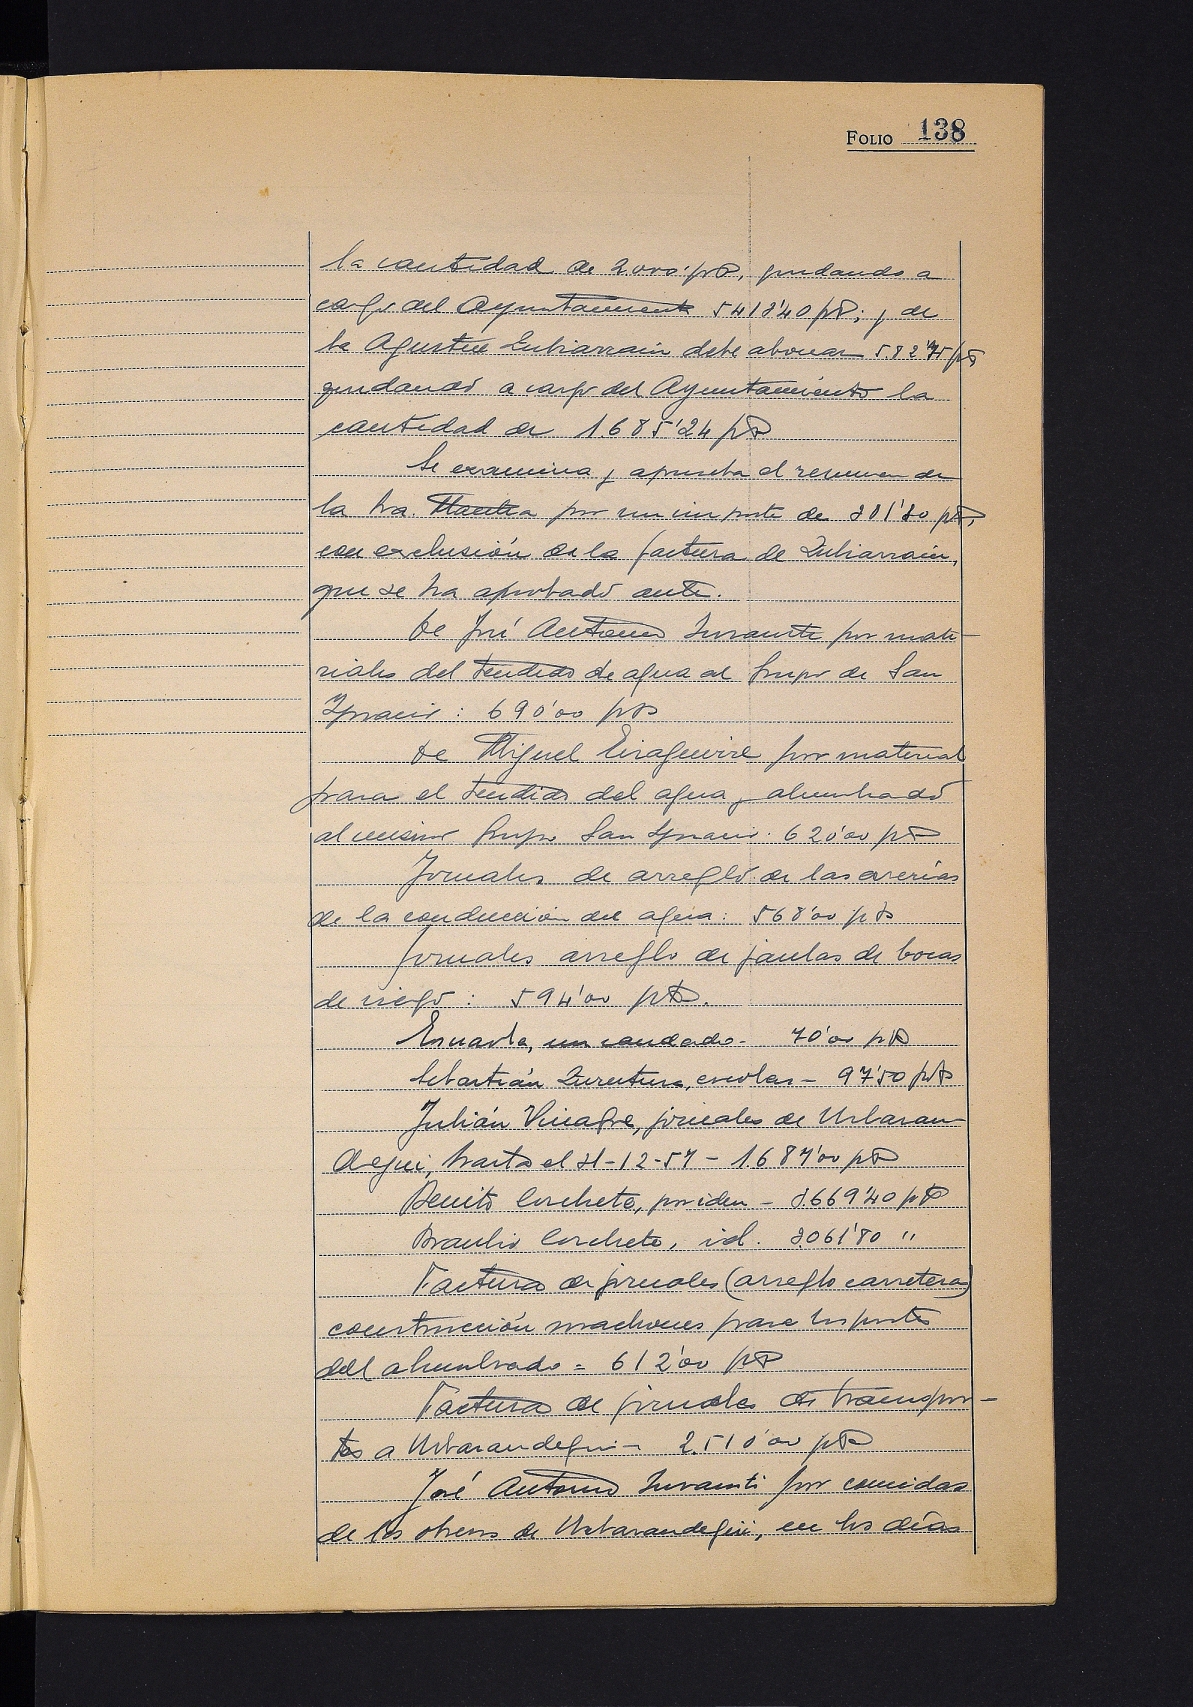 FOLIO 138
la cantidad de 2000 pts, quedando a
cargo del Ayuntamiento 5413'40 pts; y de
la Agustín Zubiarrain debe abonar 582'75 pts
quedando a cargo del Ayuntamiento la
cantidad de 1685'24 pts
Se examina y aprueba el resumen de
la Vda. por un importe de pts,
con exclusión de la factura de Zubiarrain,
que se ha aprobado ante.
De José Antonio por mate-
riales del tendido de agua al Grupo de San
Ignacio: 690'00 pts
De Miguel Eizaguirre por material
para el tendido del agua y alumbrado
al mismo Grupo San Ignacio: 620'00 pts
Jornales de arreglo de las averias
de la conducción del agua: 568'00 pts
Jornales arreglo de jaulas de bocas
de riego: 594'00 pts.
un candado - 70'00 pts
Sebastián escobas - 97'50 pts
Julián Vinagre, jornales de Urbaran-
degui, hasta el 31-12-57 - 1687'00 pts
Benito Corchete, por idem - 3669'40 pts
Braulio Corchete, id. 3061'80 "
Factura de jornales (arreglo carretera)
construcción machones para los postes
del alumbrado = 612'00 pts
Factura de jornales de transpor-
tes a Urbarandegui - 2.510'00 pts
José Antonio por comidas
de los obreros de Urbarandegui, en los días